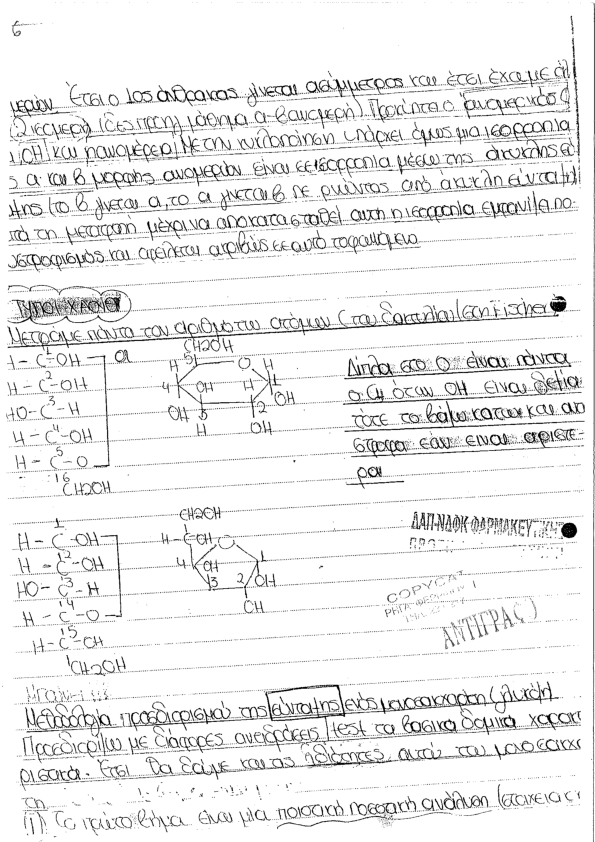 6
μερών. Έτσι ο 1ος άνθρακας γίνεται ασύμμετρος και έτσι έχουμε άλ
(2 ισομερή) (δες προηγ μάθημα α-β ανωμερή). Προκύπτει ο ανωμερικός C
(OH) και τα ανωμερεια Με την κυκλοποίηση υπάρχει όμως μια ισορροπία
ς α και β μορφής ανωμερών είναι σε ισορροπία μέσω της άκυκλης
(το β γίνεται α, το α γίνεται β περνώντας από άκυκλη
τά τη μετατροπή μέχρι να αποκατασταθεί αυτή η ισορροπία εμφανίζε πο
υστροφισμός και οφείλεται ακριβώς σε αυτό το φαινόμενο
Τύποι Χ
Μετράμε πάντα τον αριθμό των ατόμων C του δακτυλίου (στη Fischer
H - C1 - OH
H - C2 - OH
HO - C3 - H
H - C4 - OH
H - C5 - O
16
CH2OH
α
CH2OH
H 5 O H
4 OH H 1
OH 3 2 OH
H OH
Δίπλα στο Ο είναι πάντα
ο C1 όταν OH είναι δεξιά
τότε το βάζω κάτω και αν
στροφα εαν ειναι αριστε-
ρα
1
H - C - OH
12
H - C - OH
13
HO - C - H
14
H - C - O
15
H - C - OH
CH2OH
CH2OH
H - C - OH O
4 OH 1
3 2 OH
OH
ΔΑΠ-ΝΔΦΚ ΦΑΡΜΑΚΕΥΤΙΚΗΣ
COPYCAT
ΑΝΤΙΓΡΑΦ
Μεθοδολογία προσδιορισμού της σύνταξης ενός μονοσακχαρίτη (γλυκόζη)
Προσδιορίζω με διάφορες αντιδράσεις / test τα βασικά δομικά χαρακτ
ριστικά. Έτσι θα δούμε και τις ιδιότητες αυτού του μονοσακχα
τη
(1) Το πρώτο βήμα είναι μια ποιοτική ποσοτική ανάλυση (στοιχεία